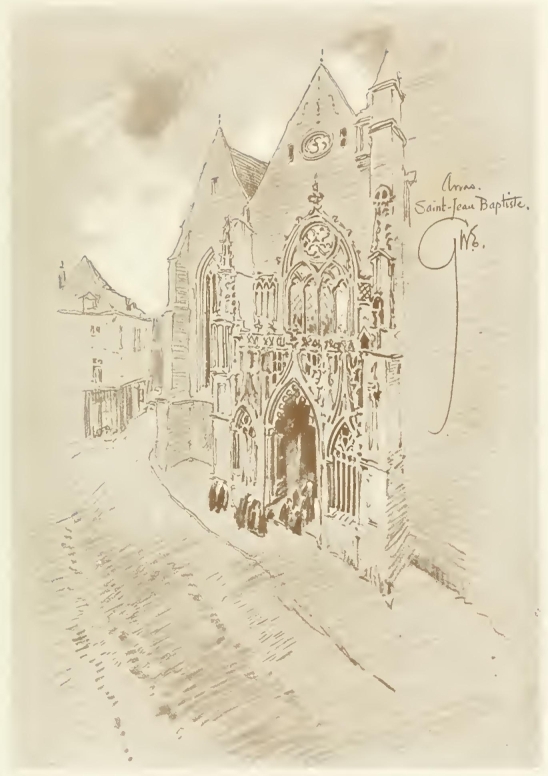 Arras.
Saint-Jean Baptiste.